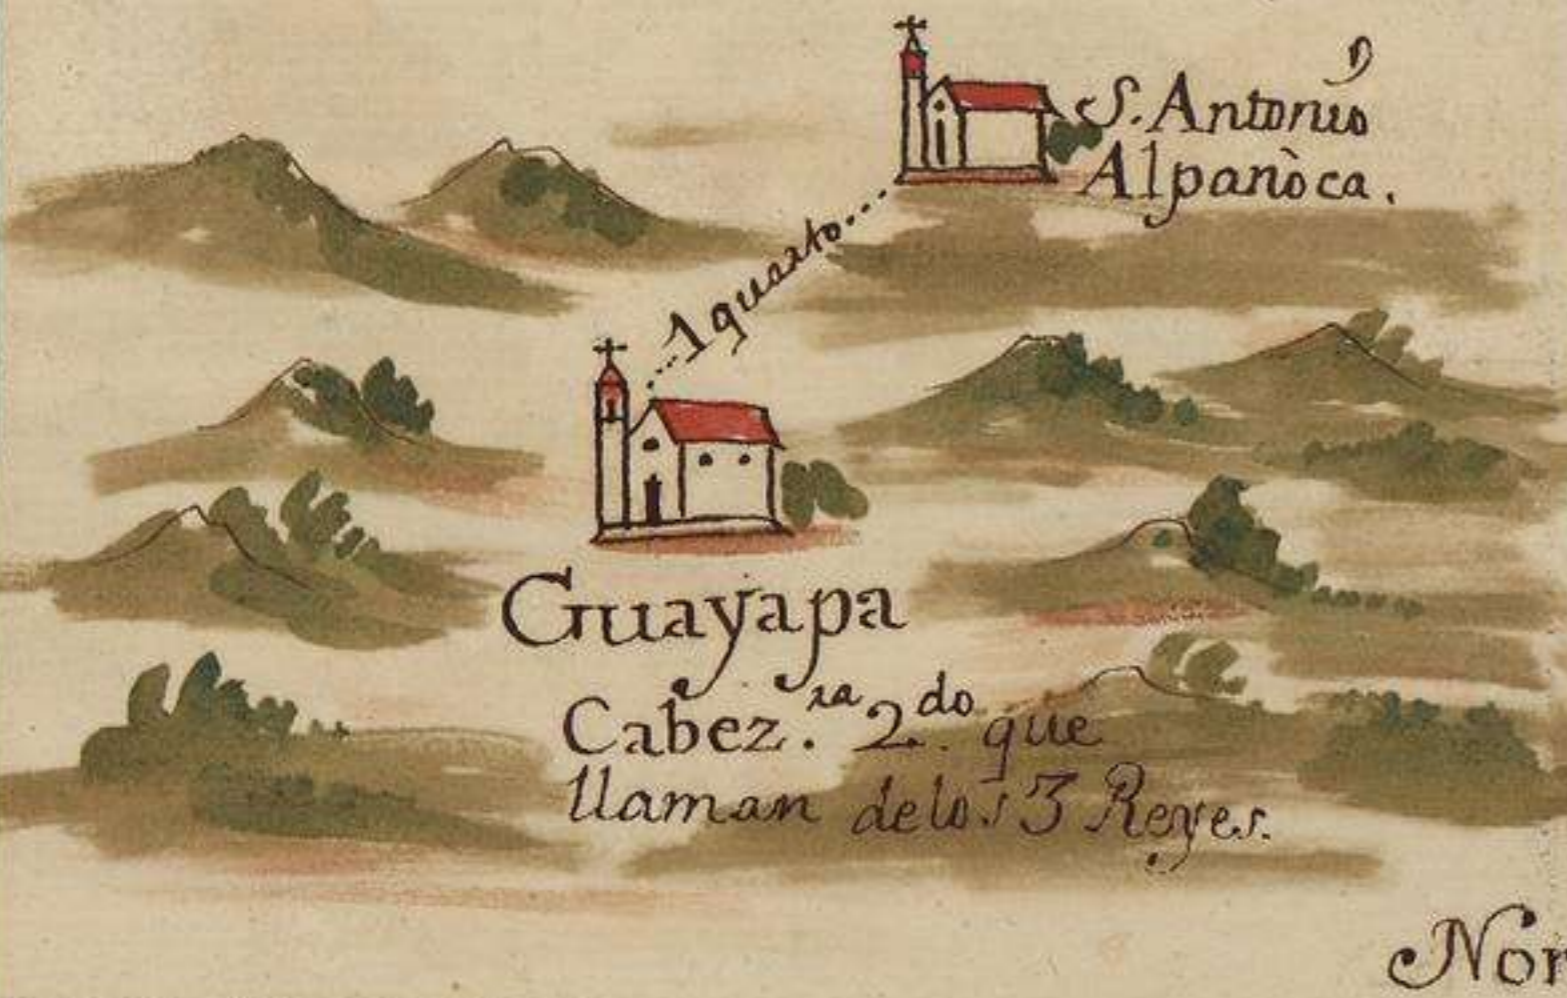 S. Antonio
Alpanòca.
1 quarto
Guayapa
Cabez.ra 2.do que
llaman de los 3 Reyes.
Nor